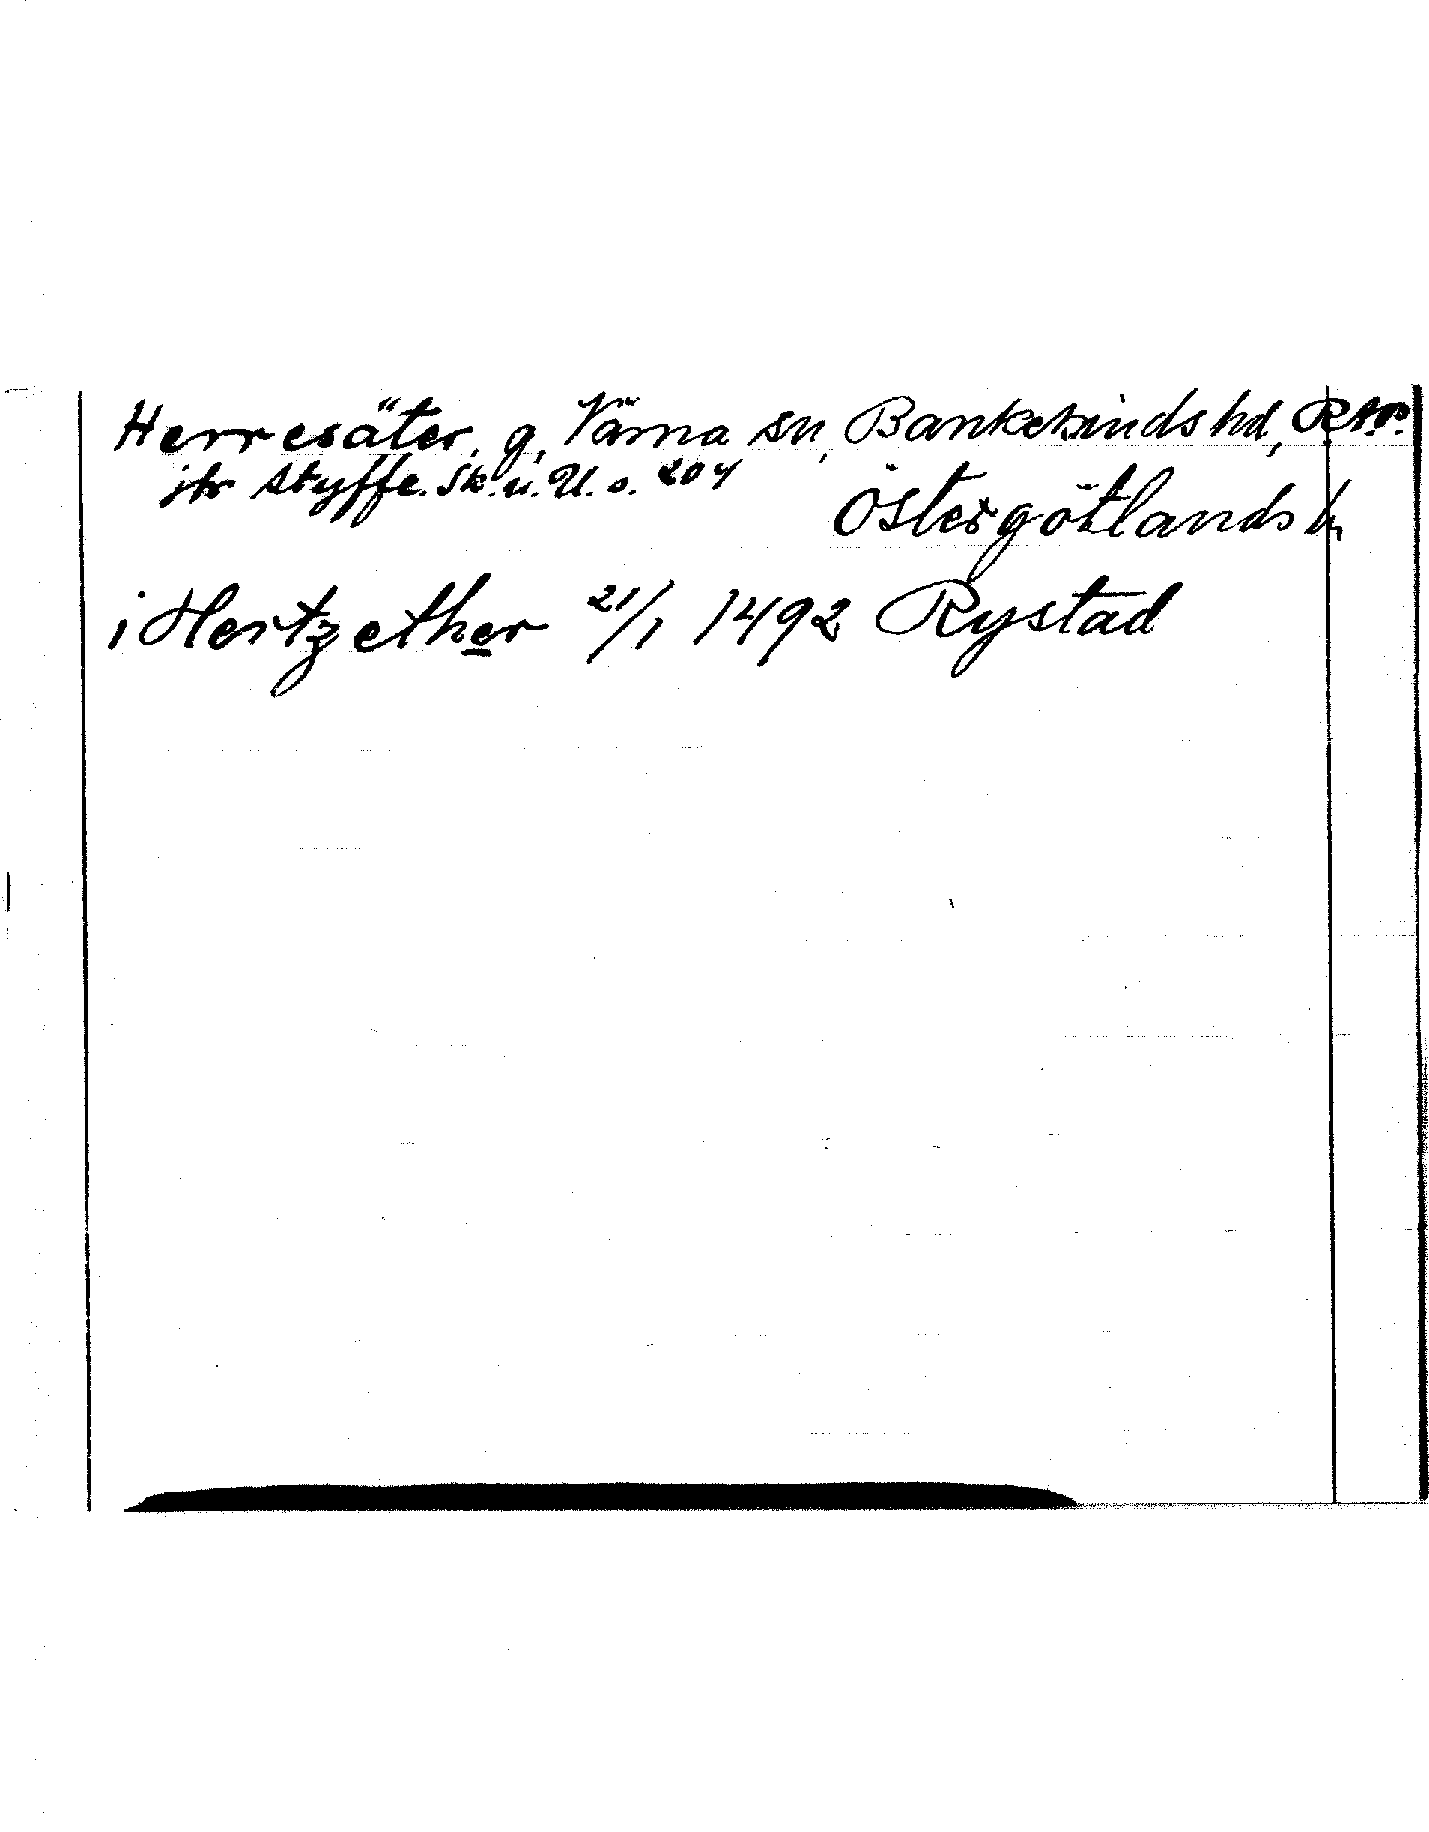 Herresäter, g, Värna sn, Bankekinds hd,
jfr Styffe. Sk. u. U. s. 204
Östergötlands l.
i Hertzether 21/1 1492 Rystad